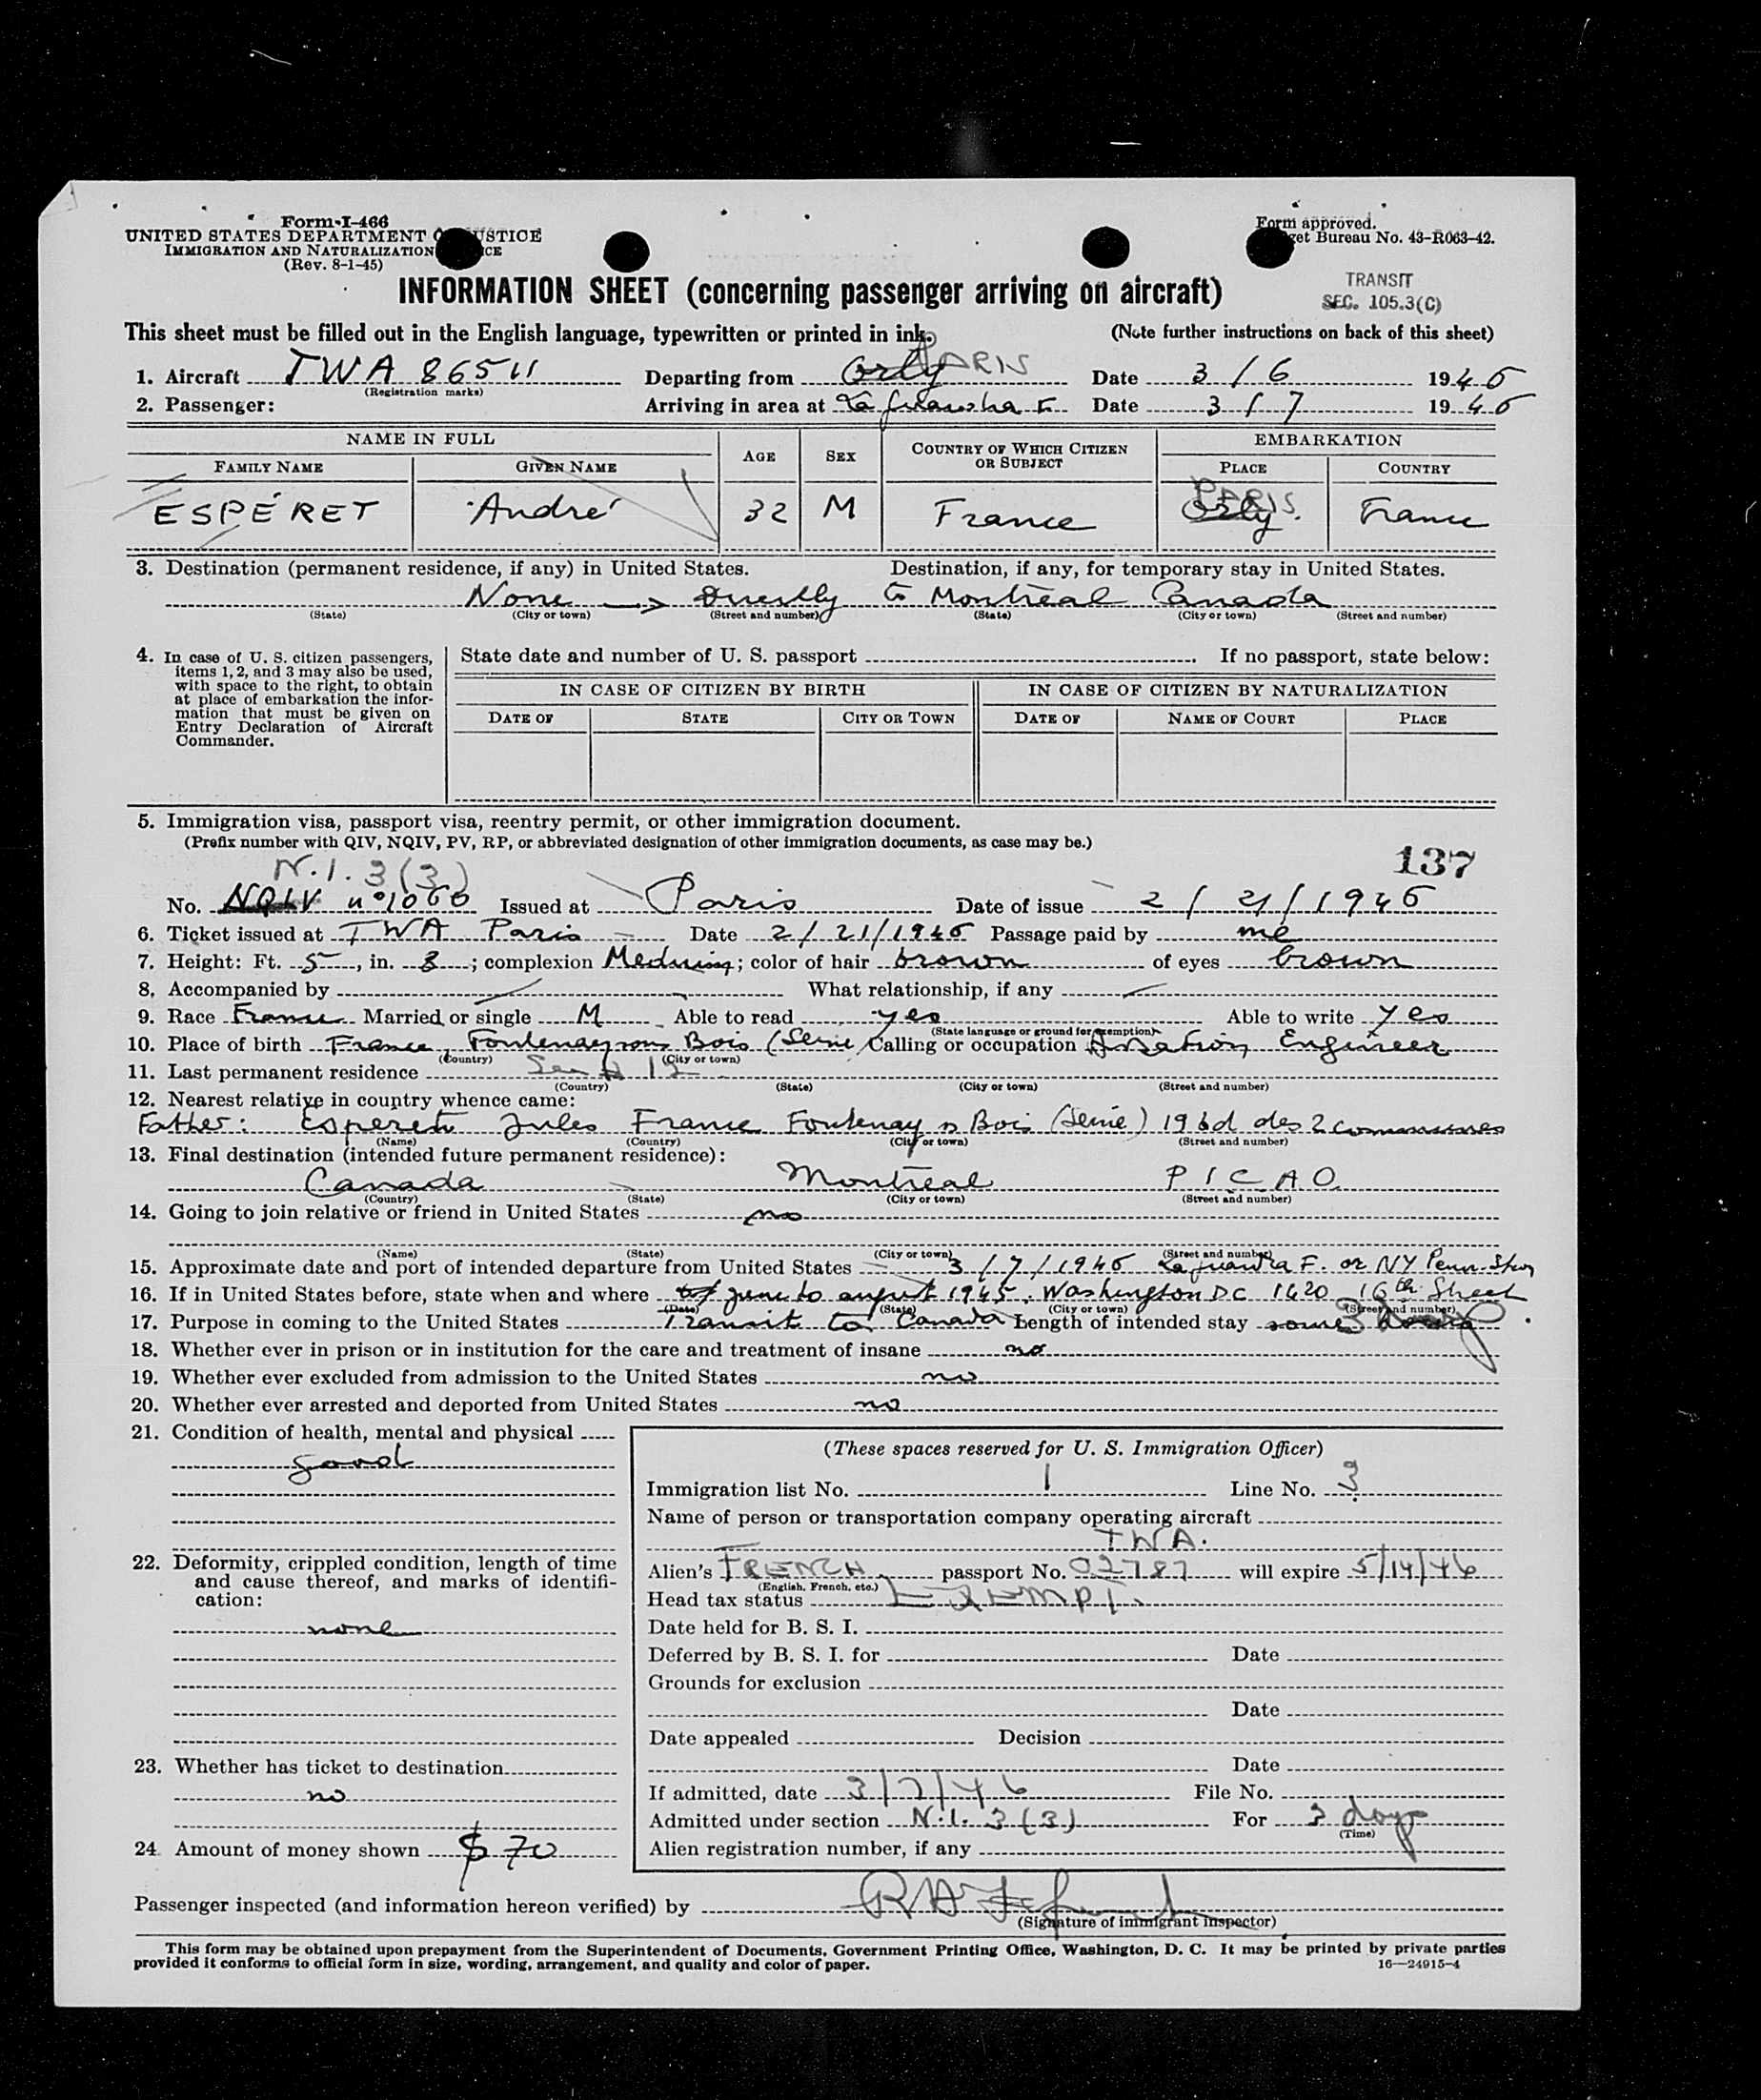 Form I-466
UNITED STATES DEPARTMENT O USTICE
IMMIGRATION AND NATURALIZATION ICE
(Rev. 8-1-45)
Form approved.
get Bureau No. 43-R063-42.
TRANSIT
SEC. 105.3(C)
INFORMATION SHEET (concerning passenger arriving on aircraft)
This sheet must be filled out in the English language, typewritten or printed in ink. (Note further instructions on back of this sheet)
PARIS
1. Aircraft TWA 86511 Departing from Orly Date 3/6 1946
(Registration marks)
2. Passenger: Arriving in area at La Date 3/7 1946
NAME IN FULL AGE SEX COUNTRY OF WHICH CITIZEN OR SUBJECT EMBARKATION
FAMILY NAME GIVEN NAME PLACE COUNTRY
PARIS
ESPÉRET André 32 M France Orly France
3. Destination (permanent residence, if any) in United States. Destination, if any, for temporary stay in United States.
None → Directly to Montréal Canada
(State) (City or town) (Street and number) (State) (City or town) (Street and number)
4. In case of U. S. citizen passengers, items 1, 2, and 3 may also be used, with space to the right, to obtain at place of embarkation the information that must be given on Entry Declaration of Aircraft Commander.
State date and number of U. S. passport If no passport, state below:
IN CASE OF CITIZEN BY BIRTH IN CASE OF CITIZEN BY NATURALIZATION
DATE OF STATE CITY OR TOWN DATE OF NAME OF COURT PLACE
5. Immigration visa, passport visa, reentry permit, or other immigration document.
(Prefix number with QIV, NQIV, PV, RP, or abbreviated designation of other immigration documents, as case may be.)
137
N.I. 3(3)
No. NQIV n° 1060 Issued at Paris Date of issue 2/21/1946
6. Ticket issued at TWA Paris Date 2/21/1946 Passage paid by me
7. Height: Ft. 5, in. 8; complexion Medium; color of hair brown of eyes brown
8. Accompanied by What relationship, if any
9. Race France Married or single M Able to read yes Able to write yes
(State language or ground for exemption)
10. Place of birth France, Fontenay sous Bois (Seine) Calling or occupation Aviation Engineer
(Country) (City or town)
11. Last permanent residence
(Country) (State) (City or town) (Street and number)
12. Nearest relative in country whence came:
Father: Esperet Jules France Fontenay s Bois (Seine) 19 bd des 2 communes
(Name) (Country) (City or town) (Street and number)
13. Final destination (intended future permanent residence):
Canada Montréal PICAO
(Country) (State) (City or town) (Street and number)
14. Going to join relative or friend in United States no
(Name) (State) (City or town) (Street and number)
15. Approximate date and port of intended departure from United States 3/7/1946 Laguardia F. or NY Penn.
16. If in United States before, state when and where june to august 1945. Washington DC 1620 16th Street
(Date) (State) (City or town) (Street and number)
17. Purpose in coming to the United States Transit to Canada Length of intended stay some
18. Whether ever in prison or in institution for the care and treatment of insane no
19. Whether ever excluded from admission to the United States no
20. Whether ever arrested and deported from United States no
21. Condition of health, mental and physical
good
22. Deformity, crippled condition, length of time and cause thereof, and marks of identification:
none
23. Whether has ticket to destination
no
24. Amount of money shown $70
(These spaces reserved for U. S. Immigration Officer)
Immigration list No. 1 Line No. 3
Name of person or transportation company operating aircraft
TWA.
Alien's FRENCH passport No. 02787 will expire 5/14/46
(English, French, etc.)
Head tax status EXEMPT.
Date held for B. S. I.
Deferred by B. S. I. for Date
Grounds for exclusion
Date
Date appealed Decision
Date
If admitted, date 3/7/46 File No.
Admitted under section N.I. 3(3) For 3 days
(Time)
Alien registration number, if any
Passenger inspected (and information hereon verified) by
(Signature of immigrant inspector)
This form may be obtained upon prepayment from the Superintendent of Documents, Government Printing Office, Washington, D. C. It may be printed by private parties
provided it conforms to official form in size, wording, arrangement, and quality and color of paper. 16—24915-4